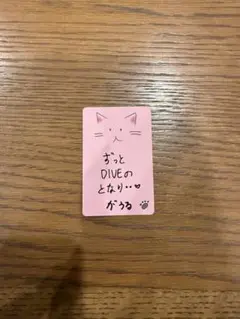 ずっと
DIVEの
となり‥♡
がうる